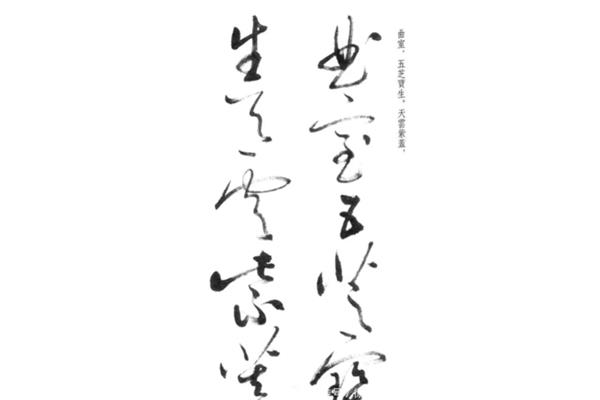 曲室。五芝寶生。天雲紫蓋。
曲室五芝寶
生天雲紫蓋